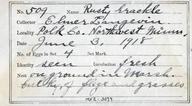 No. 509 Name Rusty Grackle
Collector Elmer Langevin
Locality Polk Co. Northwest Minn.
Date June 3, 1918
No. of Eggs in Set 4 No. Mark
Identity seen Incubation fresh
Nest on ground in Marsh.
bulky, of flags and grasses